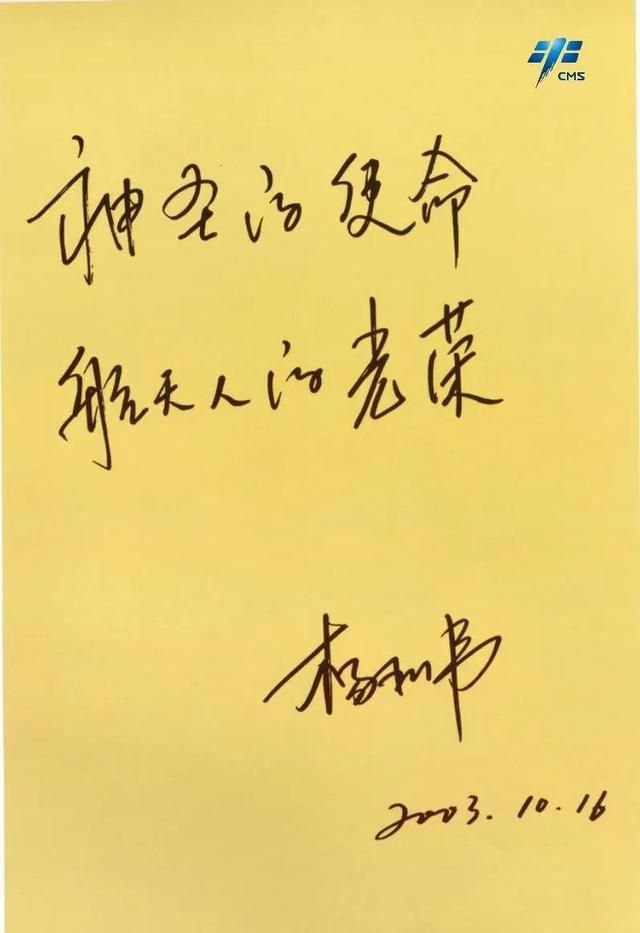 CMS
神圣的使命
航天人的光荣
杨利伟
2003.10.16